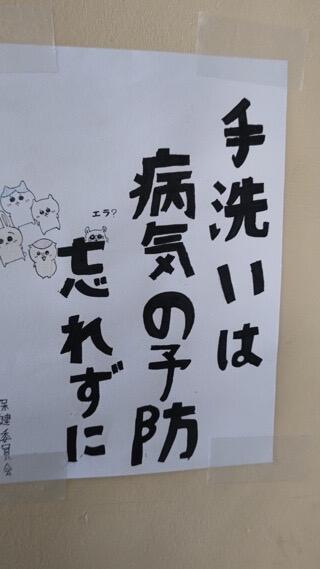 手洗いは
病気の予防
忘れずに
エラ?
保健委員会